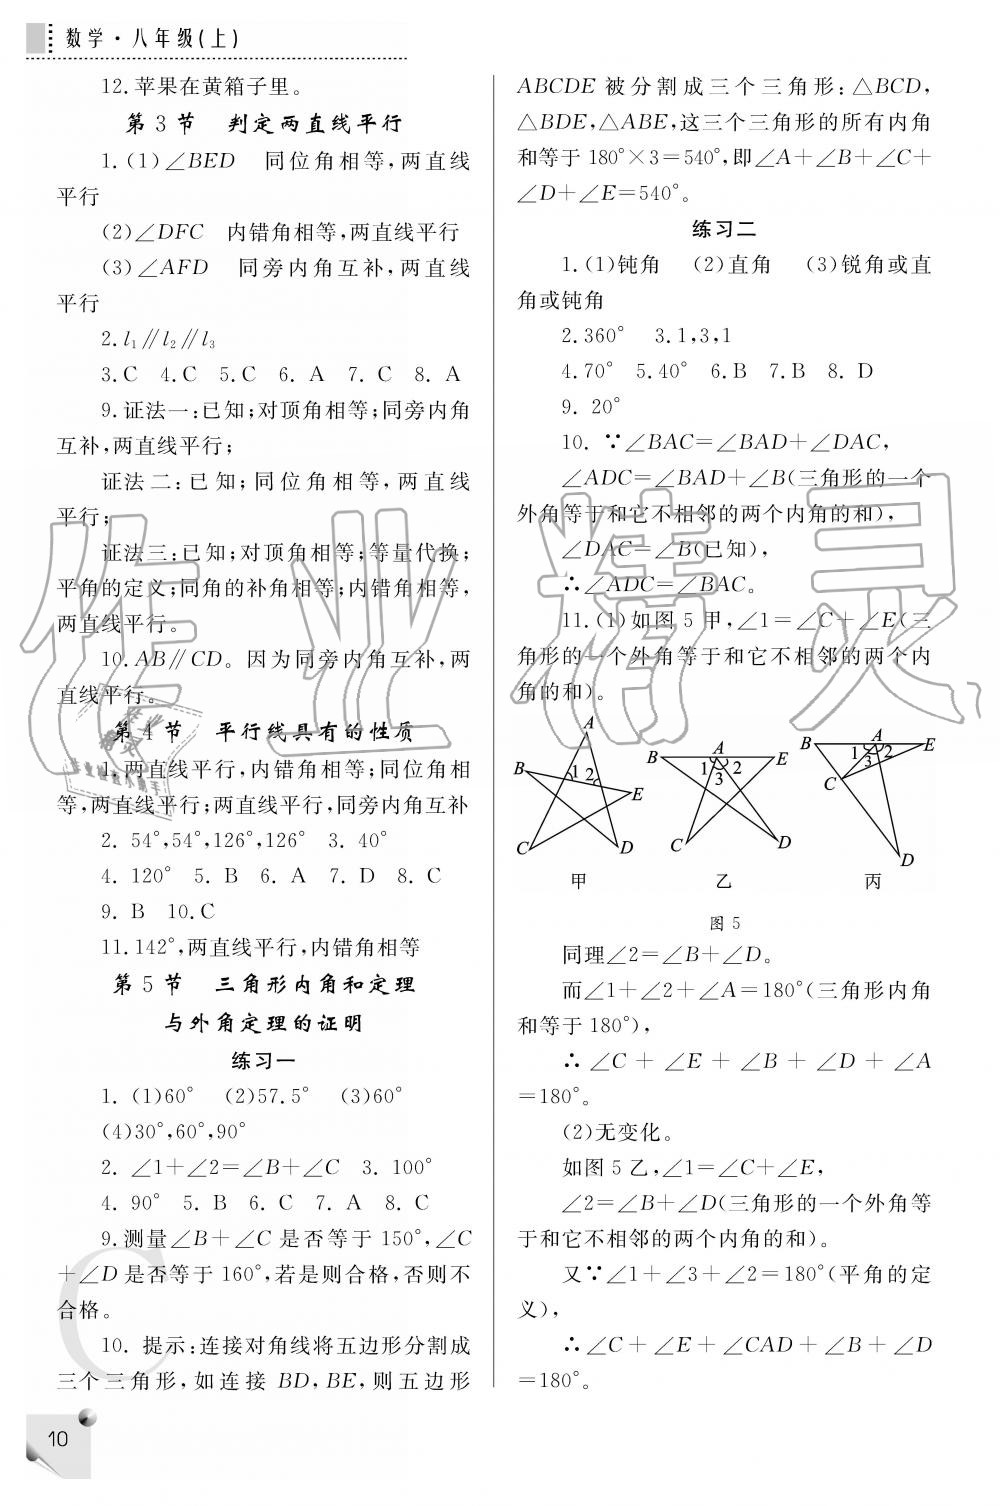 数学·八年级(上)
12.苹果在黄箱子里。
第3节 判定两直线平行
1.(1)∠BED 同位角相等,两直线
平行
(2)∠DFC 内错角相等,两直线平行
(3)∠AFD 同旁内角互补,两直线
平行
2.l₁∥l₂∥l₃
3.C 4.C 5.C 6. A 7. C 8. A
9.证法一:已知;对顶角相等;同旁内角
互补,两直线平行;
证法二:已知;同位角相等,两直线
平行;
证法三:已知;对顶角相等;等量代换;
平角的定义;同角的补角相等;内错角相等,
两直线平行。
10.AB∥CD。因为同旁内角互补,两
直线平行。
第4节 平行线具有的性质
1.两直线平行,内错角相等;同位角相
等,两直线平行;两直线平行,同旁内角互补
2. 54°,54°,126°,126° 3. 40°
4. 120° 5. B 6. A 7. D 8. C
9. B 10.C
11.142°,两直线平行,内错角相等
第5节 三角形内角和定理
与外角定理的证明
练习一
1. (1)60° (2)57.5° (3)60°
(4)30°,60°,90°
2. ∠1+∠2=∠B+∠C 3. 100°
4. 90° 5. B 6. C 7. A 8. C
9.测量∠B+∠C是否等于150°,∠C
+∠D是否等于160°,若是则合格,否则不
合格。
10. 提示:连接对角线将五边形分割成
三个三角形,如连接BD,BE,则五边形
ABCDE被分割成三个三角形:△BCD,
△BDE,△ABE,这三个三角形的所有内角
和等于180°×3=540°,即∠A+∠B+∠C+
∠D+∠E=540°。
练习二
1.(1)钝角 (2)直角 (3)锐角或直
角或钝角
2.360° 3.1,3,1
4.70° 5.40° 6.B 7.B 8. D
9. 20°
10. ∵∠BAC=∠BAD+∠DAC,
∠ADC=∠BAD+∠B(三角形的一个
外角等于和它不相邻的两个内角的和),
∠DAC=∠B(已知),
∴∠ADC=∠BAC。
11.(1)如图5甲,∠1=∠C+∠E(三
角形的一个外角等于和它不相邻的两个内
角的和)。
A
B
1 2
E
C
D
甲
B
A
E
1 2
3
C
D
乙
B
A
E
1 2
3
C
D
丙
图5
同理∠2=∠B+∠D。
而∠1+∠2+∠A=180°(三角形内角
和等于180°),
∴∠C+∠E+∠B+∠D+∠A
=180°。
(2)无变化。
如图5乙,∠1=∠C+∠E,
∠2=∠B+∠D(三角形的一个外角等
于和它不相邻的两个内角的和)。
又∵∠1+∠3+∠2=180°(平角的定
义),
∴∠C+∠E+∠CAD+∠B+∠D
=180°。
10
作业精灵